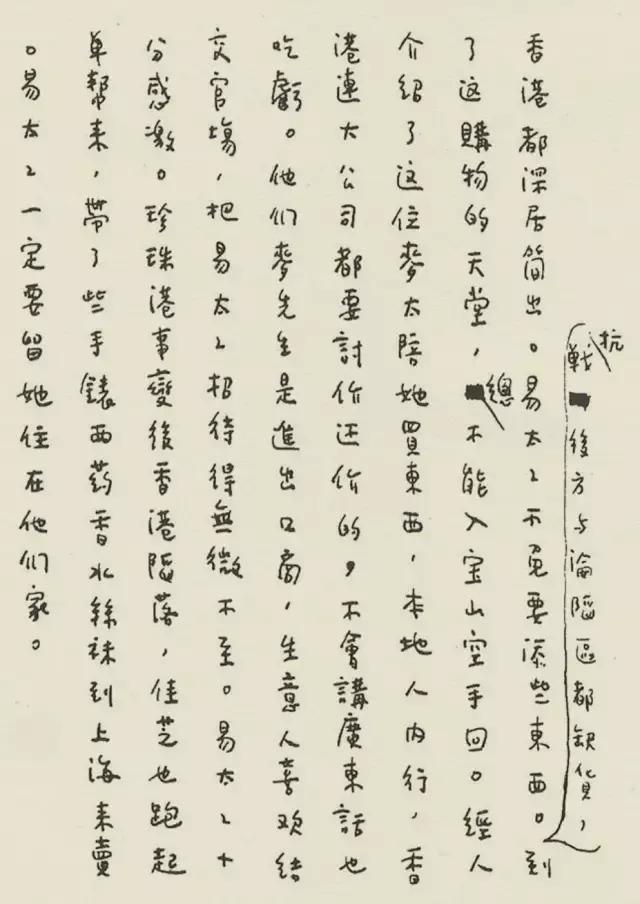 抗戰後方与淪陷區都缺貨，
香港都深居简出。易太〻不免要添些東西。到
了這購物的天堂，總不能入宝山空手回。經人
介紹了这位麥太陪她買東西，本地人内行，香
港連大公司都要討价还价的，不會講廣東話也
吃虧。他们麥先生是進出口商，生意人喜欢结
交官塲，把易太〻招待得無微不至。易太〻十
分感激。珍珠港事變後香港陷落，佳芝也跑起
单幫来，帶了些手錶西药香水絲袜到上海来賣
。易太〻一定要留她住在他们家。